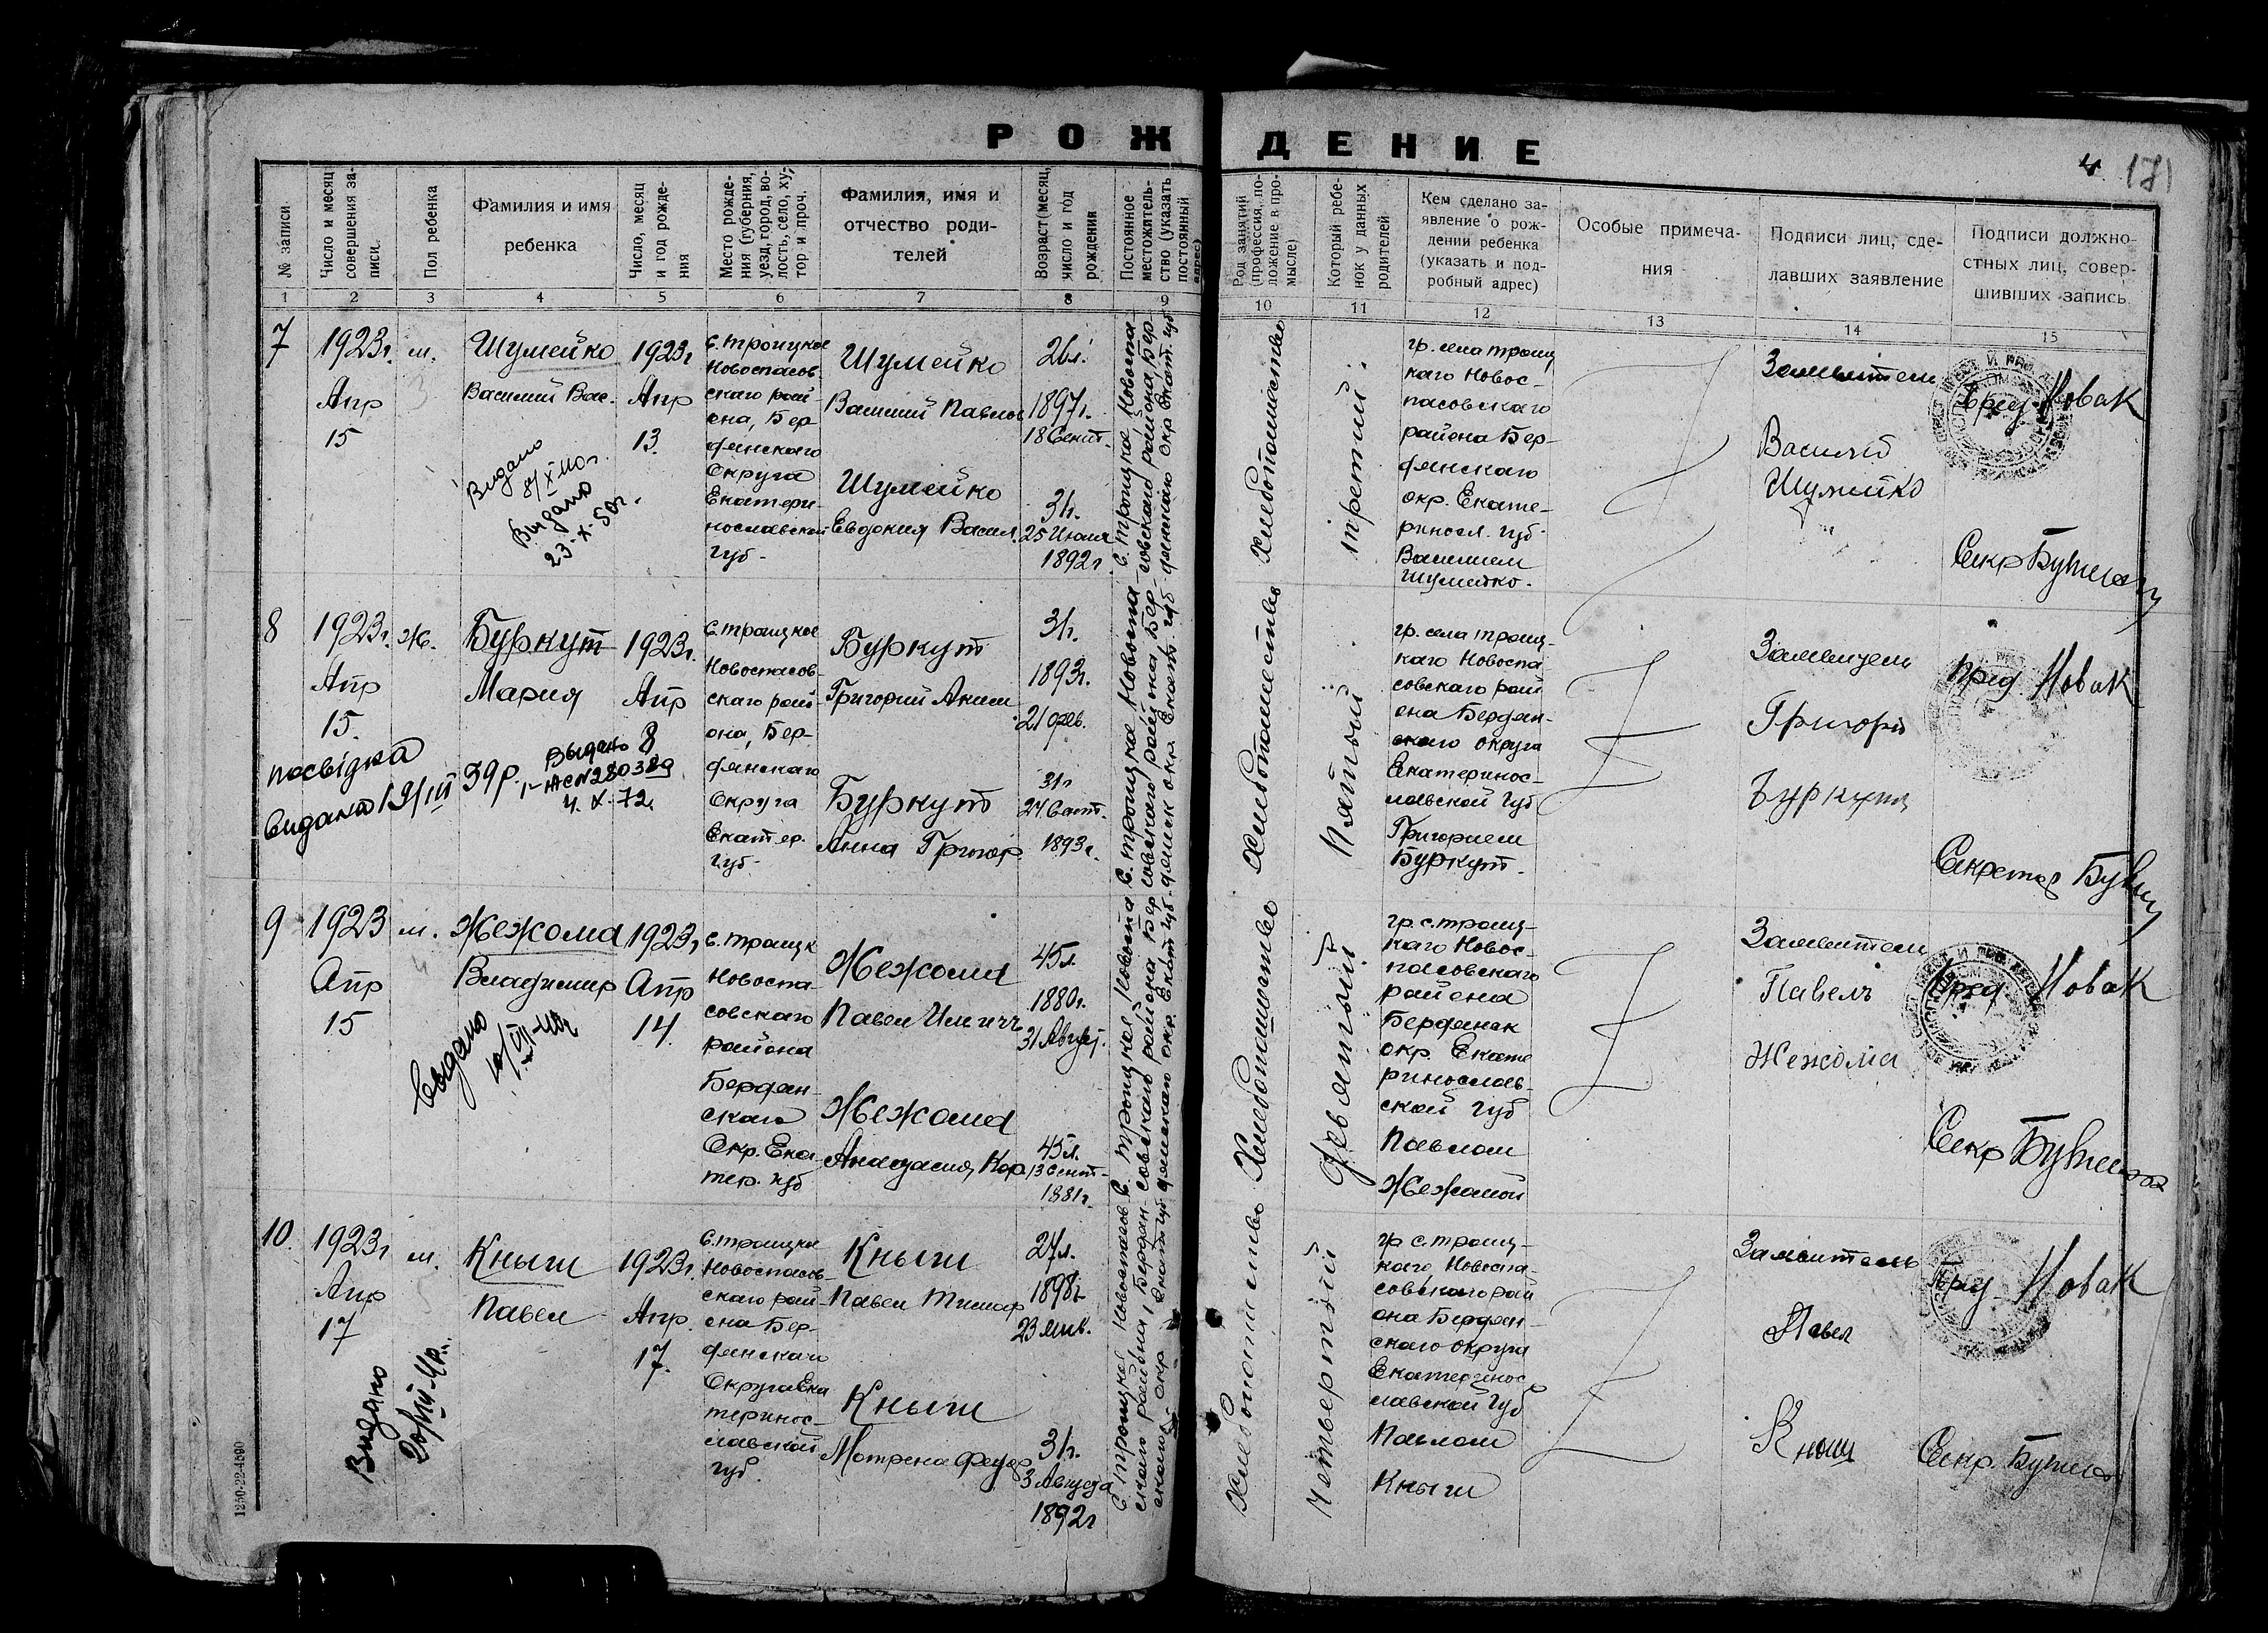 РОЖДЕНИЕ
4 171
№ записи
Число и месяц совершения записи.
Пол ребенка
Фамилия и имя
ребенка
Число, месяц и год рождения
Место рождения (губерния, уезд, город, волость, село, хутор и проч.
Фамилия, имя и
отчество роди-
телей
Возраст (месяц, число и год рождения
Постоянное местожительство (указать постоянный адрес)
Род занятий (профессия, положение в промысле)
Который ребенок у данных родителей
Кем сделано за-
явление о рож-
дении ребенка
(указать и под-
робный адрес)
Особые примеча-
ния
Подписи лиц, сде-
лавших заявление
Подписи должно-
стных лиц, совер-
шивших запись
1 2 3 4 5 6 7 8 9 10 11 12 13 14 15
7
1923г.
Апр
15
м.
Шумейко
Василий Вас.
Видано
8/X 40г.
Выдано
23-X-50г.
1923г
Апр
13.
с. троицкое
Новоспасов
скаго рай-
она, Бер-
дянскаго
Округа
Екатери-
нославской
губ-
Шумейко
Василий Павлов
Шумейко
Евдокия Васил.
26л.
1897г.
18 Сент.
31г.
25 Июля
1892г
С. троицкое Новоспа-
совскаго района Бер-
дянскаго окр Екат. губ
Хлебопашество
третий
гр. села троиц
каго Новос-
пасовскаго
района Бер-
дянскаго
окр. Екате-
риносл. губ-
Василием
Шумейко.
Заявитель
Василий
Шумейко
Пред. Новак
Секр
8
1923г.
Апр
15.
ж.
Буркут
Мария
посвідка
видана 19/III 39р.
Выдано 8
1-ЖС N280389
4. X. 72.
1923г.
Апр
8
с. троицкое
Новоспасов-
скаго рай-
она, Бер-
дянскаго
Округа
Екатер.
губ-
Буркут
Григорий Аким
Буркут
Анна Григор
31г.
1893г.
21 фев.
31г
24 Сент.
1893г.
С. троицкое Новоспа-
совскаго района Бер-
дянск окр. Екат. губ
Хлебопашество
Пятый
гр. села троиц-
каго Новоспа
совскаго рай
она Бердян-
скаго округа
Екатеринос-
лавской губ
Григорием
Буркут.
Заявитель
Григорий
Буркут
Пред Новак
Секретар
9
1923
Апр
15
м.
Жежома
Владимир
Выдано
10/VII-40г
1923г
Апр
14.
с. троицк
Новоспа-
совскаго
района
Бердян-
скаго
Окр. Ека-
тер. губ
Жежома
Павел Ильичъ
Жежома
Анастасия Кор.
45л.
1880г.
31 Август.
45л.
13 Сент-
1881г.
С. троицкое Новоспа-
совскаго района Бер-
дянскаго окр. Екат губ
Хлебопашество
девятый
гр. с. троиц-
каго Новос-
пасовскаго
района
Бердянск
окр. Екате
ринослав-
ской губ
Павлом
Жежомой
Заявитель
Павелъ
Жежома
Пред Новак
Секр
10.
1923г
Апр
17
м.
Кныш
Павел
Видано
1923г.
Апр.
17.
с. троицкое
Новоспасов-
скаго рай-
она Бер-
дянскаго
Округа Ека
теринос-
лавской
губ.
Кныш
Павел Тимоф
Кныш
Матрена Федор
27л.
1898г
31г.
3 Августа
1892г
С. троицкое Новоспасов
скаго района Бердян-
скаго окр Екат губ
Хлебопашество
Четвертый
гр с. троиц-
каго Новоспа-
совскаго рай
она Бердян-
скаго округа
Екатеринос
лавской губ
Павлом
Кныш
Заявитель
Павел
Кныш
Пред Новак
Секр.
1250-22-4590